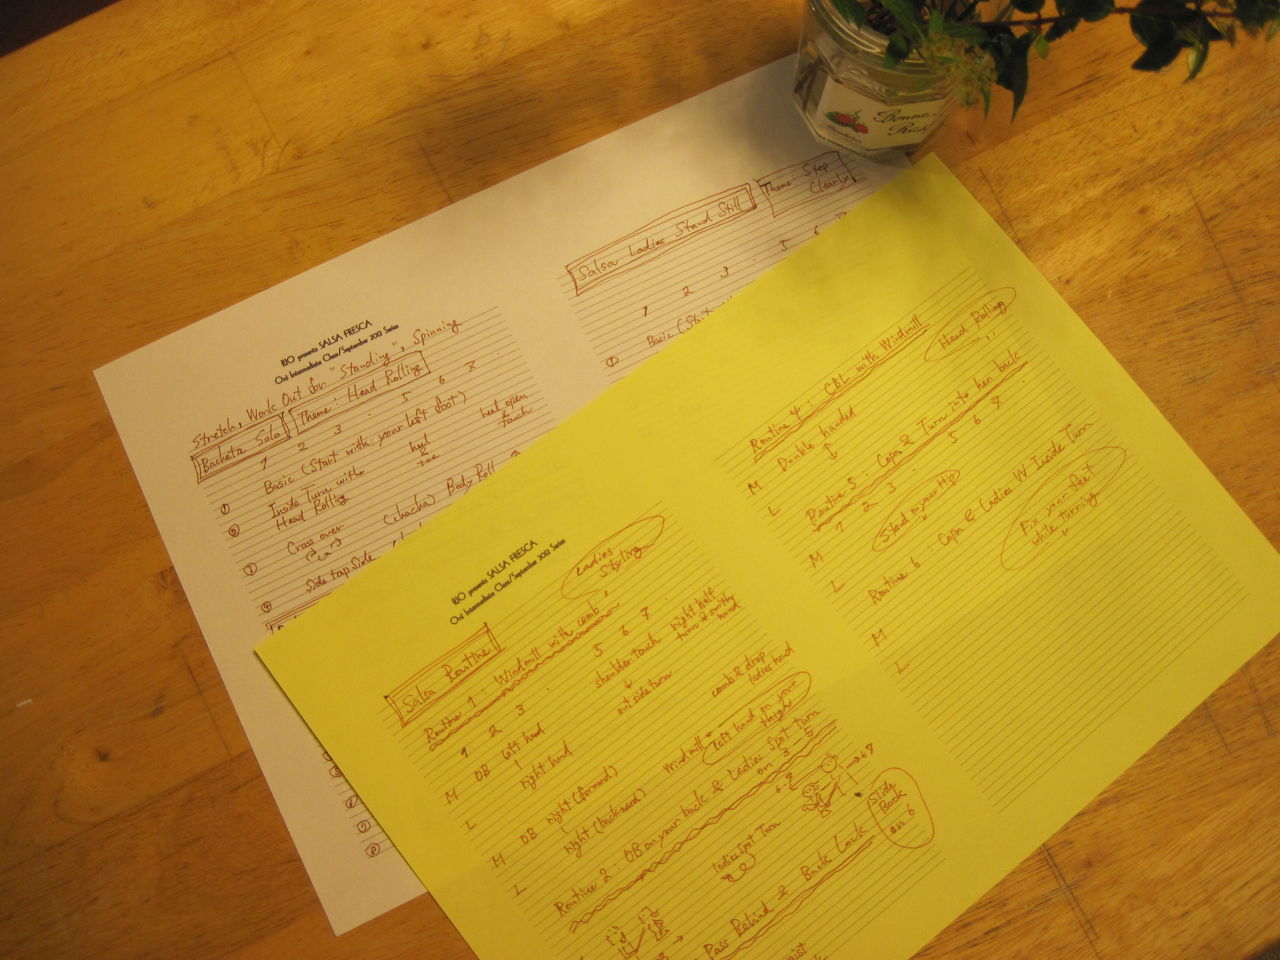 Bonne
RIO presents SALSA FRESCA
Oct Intermediate Class/September 2012 Series
Stretch, Work Out for "Standing", Spinning
Bachata Solo
Theme: Head Rolling
1 2 3 . 5 6 7 .
① Basic (Start with your left foot)
② Inside Turn with
Head Rolling
heel
&
toe
heel open
& touch
③ Cross over
(chacha) Body Roll
④ Side tap side
Salsa Ladies Stand Still
Theme: Step
Cleanly
1 2 3 . 5 6
① Basic
⑦
⑧
RIO presents SALSA FRESCA
Oct Intermediate Class/September 2012 Series
Ladies
Styling
Salsa Routine
Routine 1: Windmill with comb
1 2 3 . 5 6 7 .
M OB left hand
shoulder touch
right half
turn & switch
hand
L right hand
outside turn
M OB right (forward)
windmill
comb & drop
ladies hand
L right (backward)
left hand on your
thigh
Routine 2: OB on your back & Ladies Spot turn
on 3 5
Ladies Spot Turn
Pass Behind & Back Lock
Slide
Back
on 6
Routine 4: CBL with Windmill
Head Rolling
M Double handed
L
Routine 5: Copa & Turn into her back
1 2 3 5 6 7
M Stand on your Hip
L
Routine 6: Copa & Ladies W Inside Turn
Fix your feet
while turning
M
L